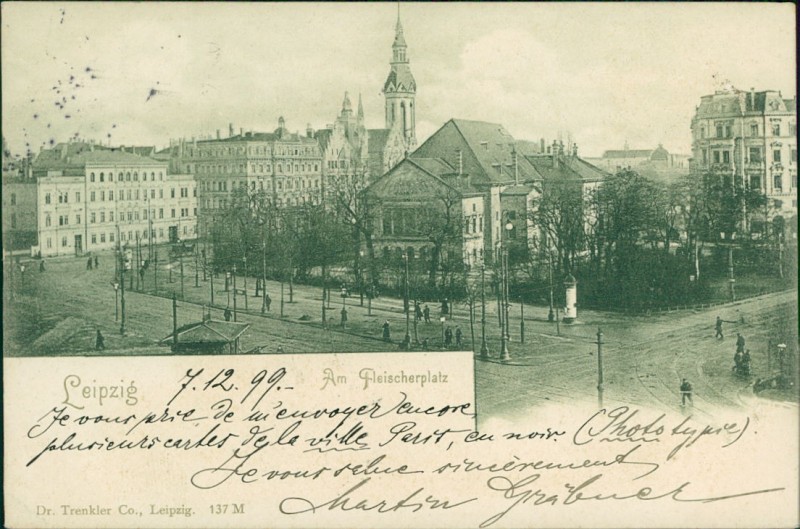 Leipzig 7.12.99.- Am Fleischerplatz
Je vous prie de m'envoyer encore
plusieurs cartes de la ville Paris, en noir. (Phototypie).
Je vous salue sincèrement
Martin Gräbner
Dr. Trenkler Co., Leipzig. 137 M